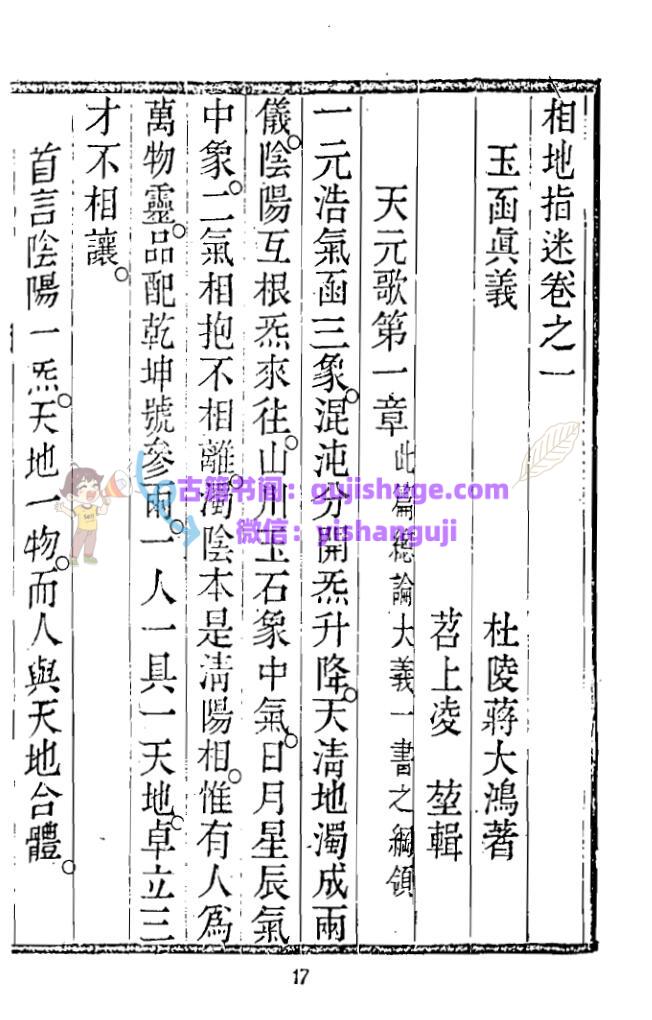 相地指迷卷之一
玉函眞義 杜陵蔣大鴻著
苕上凌 堃輯
天元歌第一章 此篇總論大義一書之綱領
一元浩氣函三象。混沌分開炁升降。天清地濁成兩
儀。陰陽互根炁來往。山川玉石象中氣。日月星辰氣
中象。二氣相抱不相離。濁陰本是清陽相。惟有人爲
萬物靈。品配乾坤號參兩。一人一具一天地。卓立三
才不相讓。
首言陰陽一炁。天地一物。而人與天地合體。
古籍书阁：gujishuge.com
微信：yishanguji
17